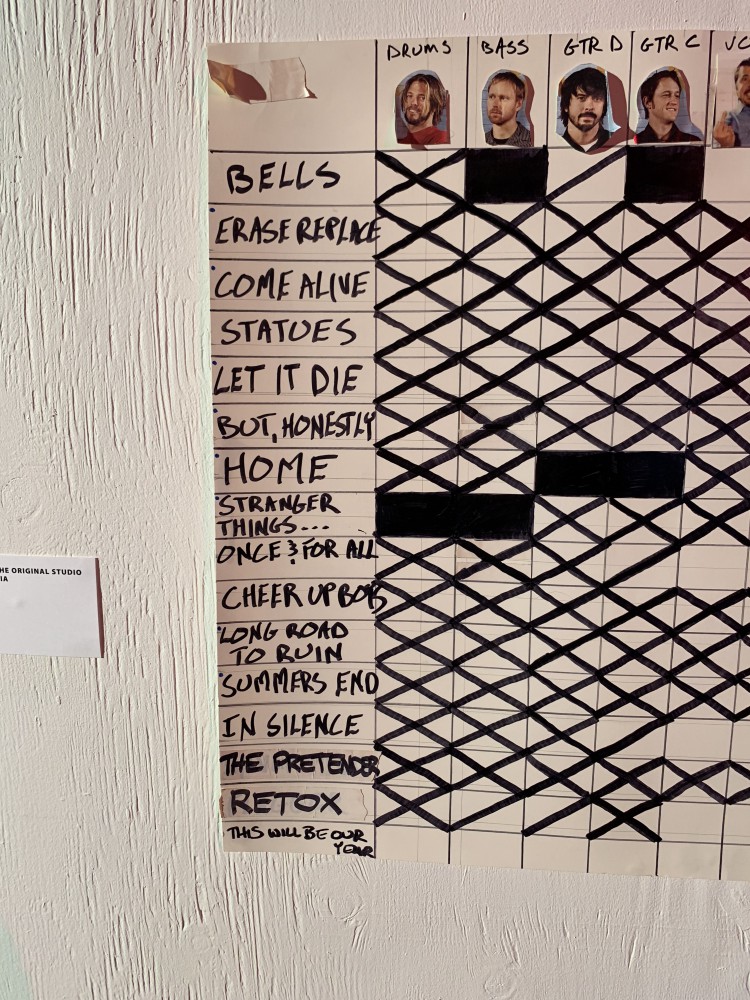 DRUMS BASS GTR D GTR C
BELLS
ERASE REPLACE
COME ALIVE
STATUES
LET IT DIE
BUT, HONESTLY
HOME
STRANGER
THINGS...
ONCE & FOR ALL
HE ORIGINAL STUDIO
IA
CHEER UP BOB
LONG ROAD
TO RUIN
SUMMERS END
IN SILENCE
THE PRETENDER
RETOX
THIS WILL BE OUR
YEAR